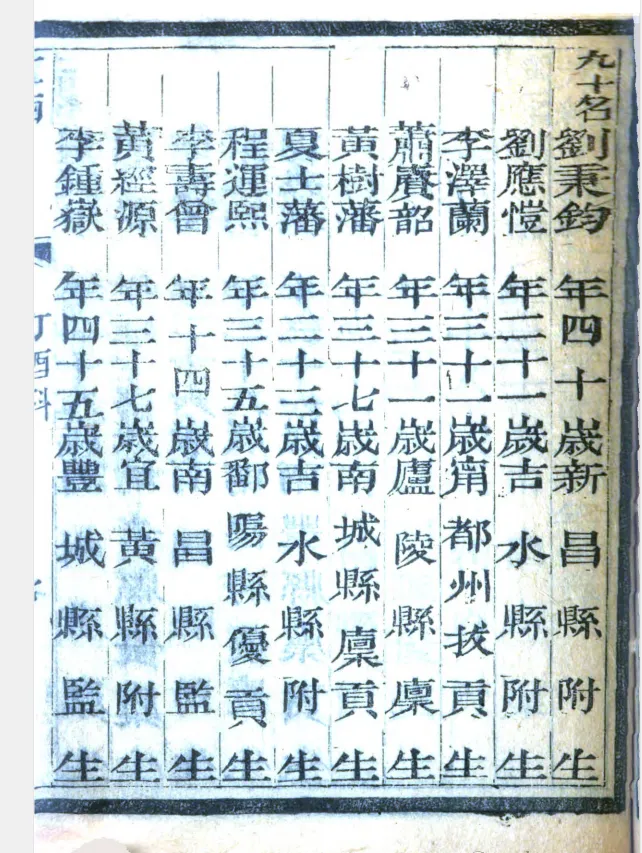 九十名劉秉鈞 年四十歲新昌縣附生
劉應愷 年二十一歲吉水縣附生
李澤蘭 年三十一歲甯都州拔貢生
蕭賡韶 年三十一歲廬陵縣廩生
黃樹藩 年三十七歲南城縣廩貢生
夏士藩 年二十三歲吉水縣附生
程運熙 年三十五歲鄱陽縣優貢生
李壽曾 年十四歲南昌縣監生
黃經源 年三十七歲宜黃縣附生
李鍾嶽 年四十五歲豐城縣監生
丁酉科